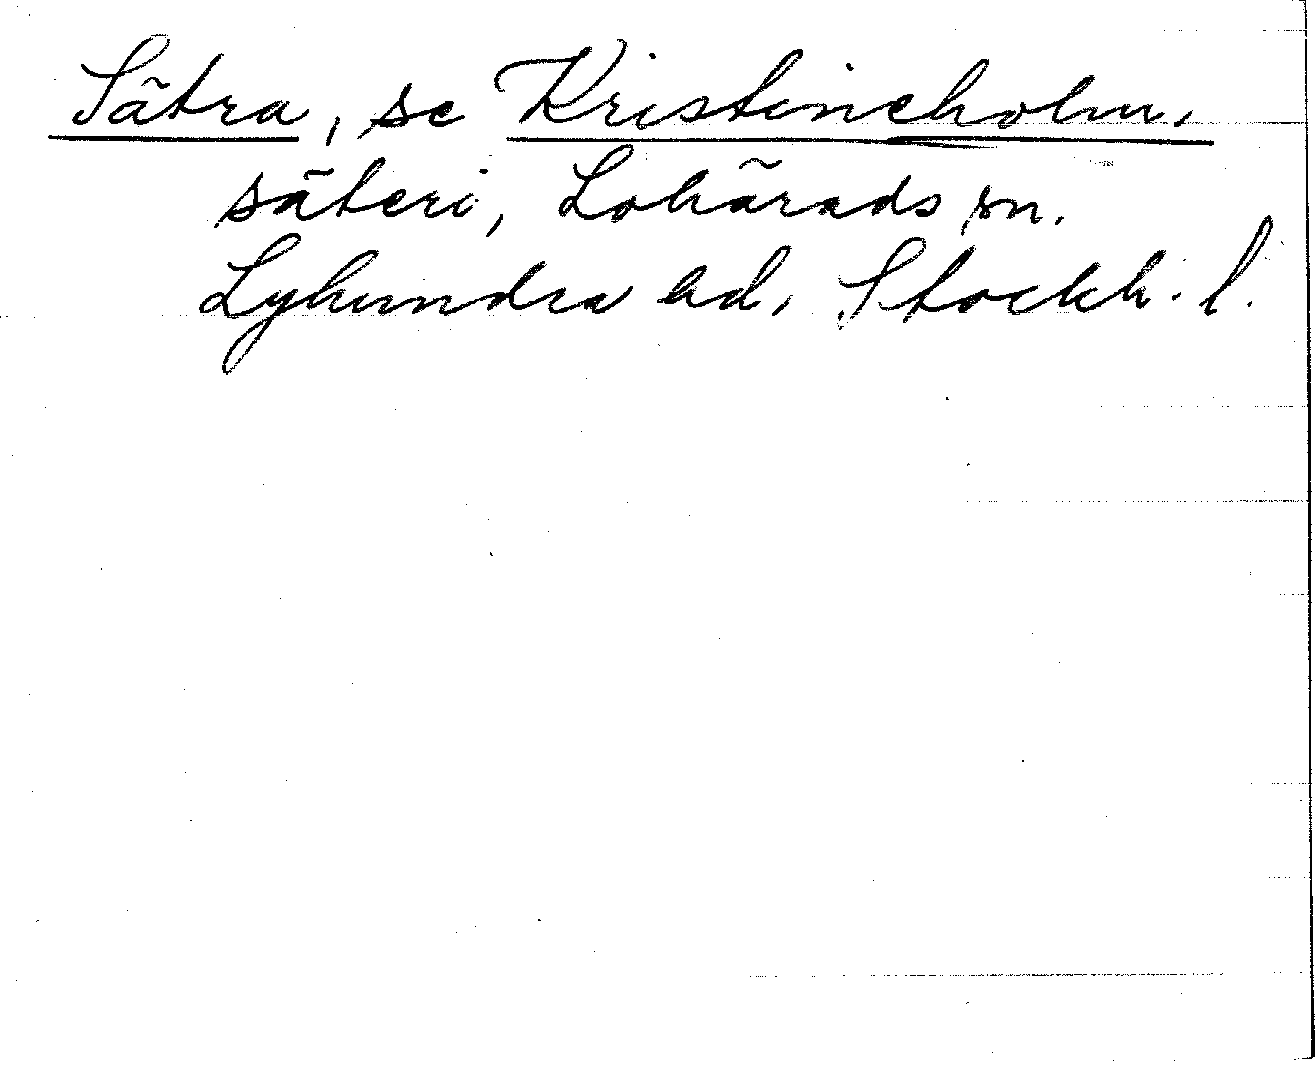 Sätra, se Kristineholm,
säteri, Lohärads sn.
Lyhundra hd, Stockh. l.